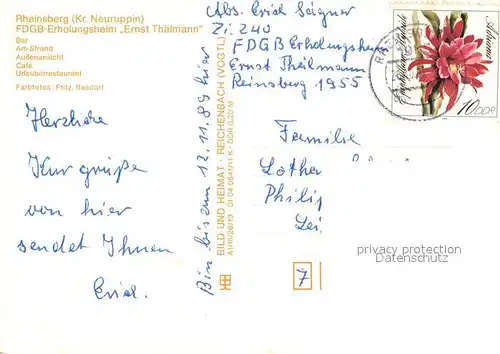 Rheinsberg (Kr. Neuruppin)
FDGB-Erholungsheim „Ernst Thälmann"
Bar
Am Strand
Außenansicht
Café
Urlauberrestaurant
Farbfotos: Fritz, Basdorf
Herzliche
Kurgrüße
von hier
sendet Ihnen
Erich.
Bin bis zum 12.11.89 hier
BILD UND HEIMAT · REICHENBACH (VOGTL)
A1/III/26/13 · DDR 0,20 M
Abs. Erich
Zi. 240
FDGB Erholungsheim
Ernst Theilmann
Reinsberg 1955
10 DDR
Familie
Lothar
Philip
privacy protection
Datenschutz
7